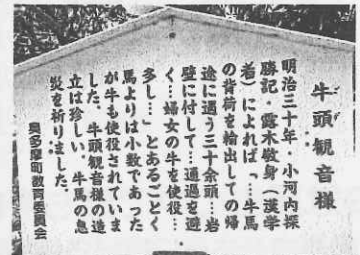 牛頭観音様
明治三十年・小河内探
勝記・露木敏身（漢学
着）によれば「…牛馬
の背荷を輸出しての帰
途に遇う三十余頭…岩
壁に付して…通過を避
く…婦女の牛を使役…
多し…」とあるごとく
馬よりは小数であった
が牛も使役されていま
した。牛頭観音様の造
立は珍しい、牛馬の息
災を祈りました。
奥多摩町教育委員会